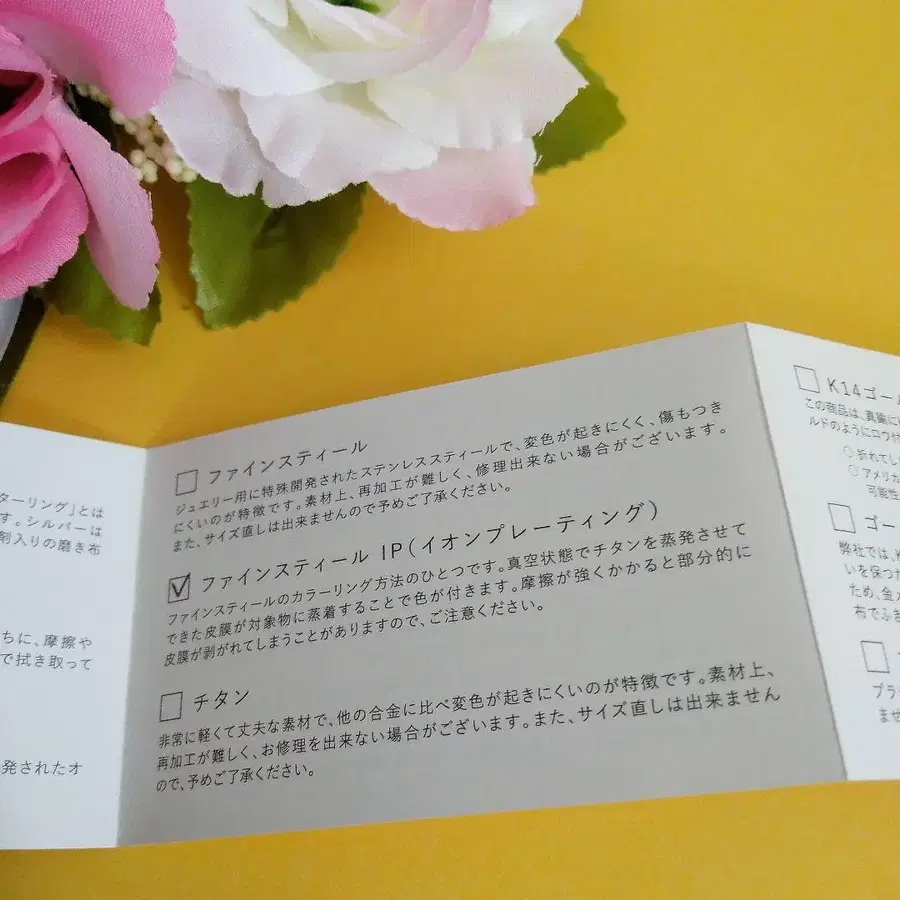 ターリング」とは
す。シルバーは
剤入りの磨き布
ちに、摩擦や
で拭き取って
発されたオ
ファインスティール
ジュエリー用に特殊開発されたステンレススティールで、変色が起きにくく、傷もつき
にくいのが特徴です。素材上、再加工が難しく、修理出来ない場合がございます。
また、サイズ直しは出来ませんので予めご了承ください。
ファインスティール IP(イオンプレーティング)
ファインスティールのカラーリング方法のひとつです。真空状態でチタンを蒸発させて
できた皮膜が対象物に蒸着することで色が付きます。摩擦が強くかかると部分的に
皮膜が剥がれてしまうことがありますので、ご注意ください。
チタン
非常に軽くて丈夫な素材で、他の合金に比べ変色が起きにくいのが特徴です。素材上、
再加工が難しく、お修理を出来ない場合がございます。また、サイズ直しは出来ません
ので、予めご了承ください。
K14ゴー
この商品は、真鍮に
ルドのようにロウ付
○ 折れてし
○ アメリカ
可能性
ゴー
弊社では、K
いを保つた
ため、金メ
布でふき
プラ
ませ